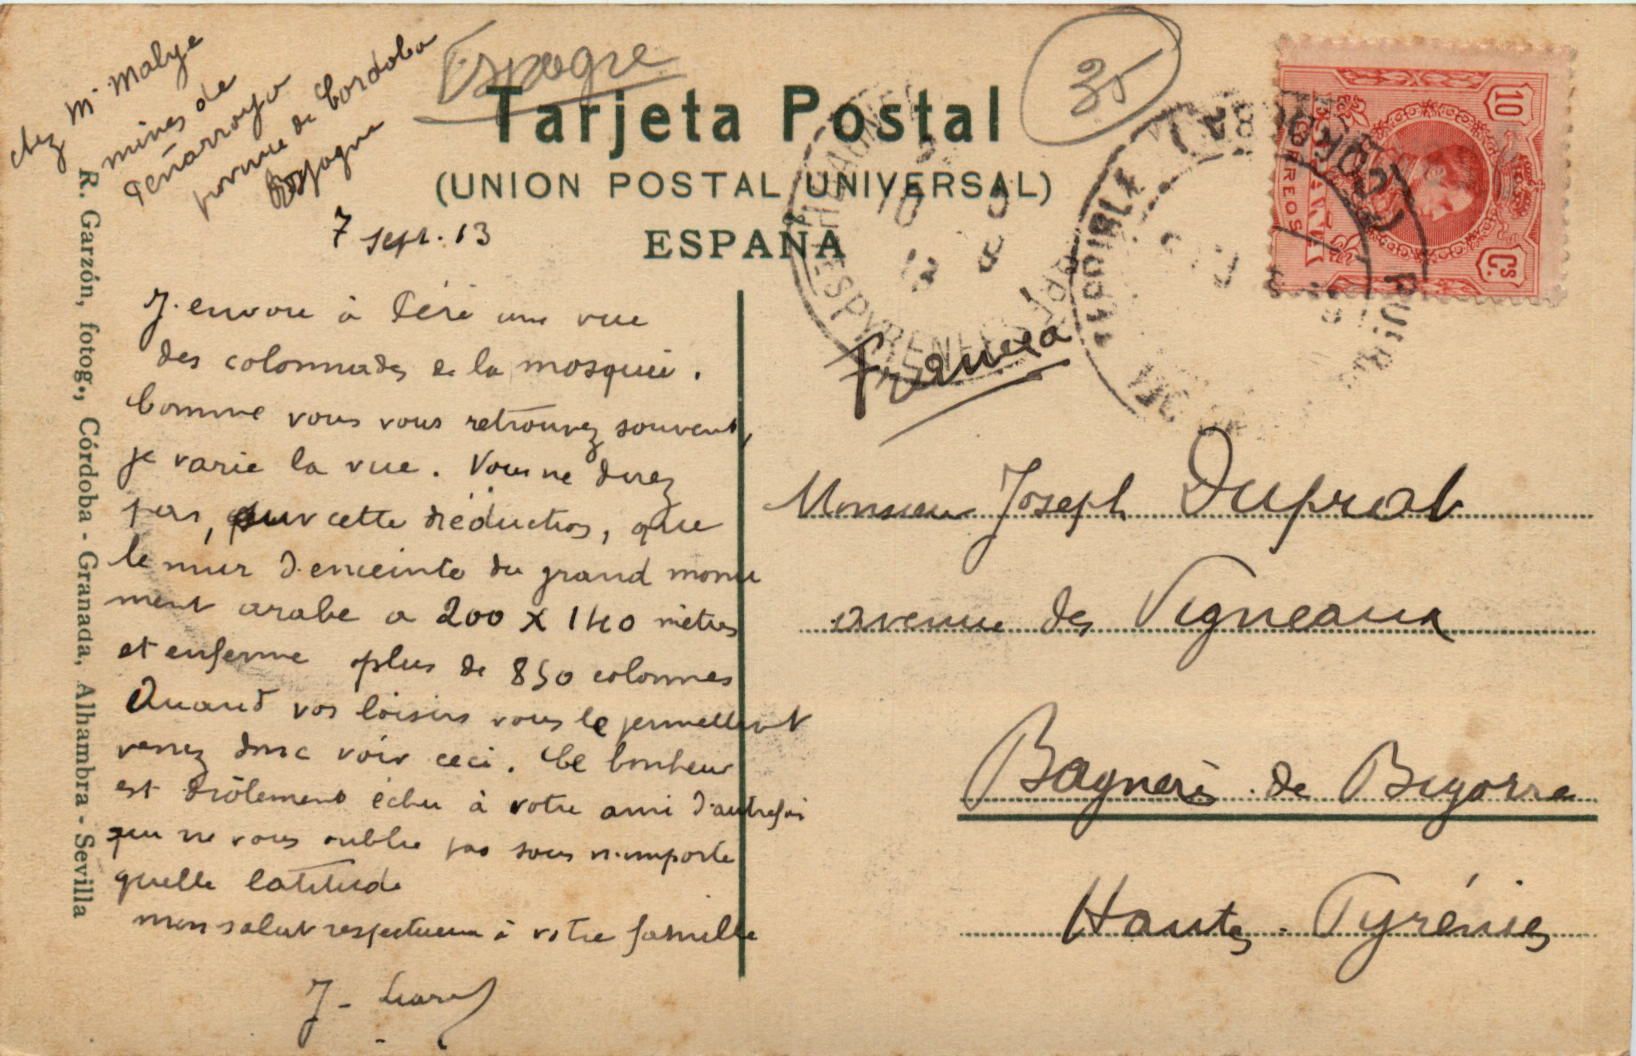 chez Mr Malye
mines de
Peñarroya
province de Cordoba
Espagne
Espagne
35
Tarjeta Postal
(UNION POSTAL UNIVERSAL)
ESPAÑA
10 Cs
CORREOS
7 sept. 13
R. Garzón, fotog., Córdoba - Granada, Alhambra - Sevilla
J'envoie à Péré une vue
des colonnades de la mosquée.
Comme vous vous retrouvez souvent,
je varie la vue. Vous ne direz
pas, sur cette réduction, que
le mur d'enceinte du grand monu
ment arabe a 200 x 140 mètres
et enferme plus de 850 colonnes
Quand vos loisirs vous le permettent
venez donc voir ceci. Ce bonheur
est drôlement échu à votre ami d'autrefois
qui ne vous oublie pas sous n'importe
quelle latitude
mon salut respectueux à votre famille
J.
Francia
Monsieur Joseph Duprat
avenue des Vigneaux
Bagnères de Bigorre
Hautes-Pyrénées